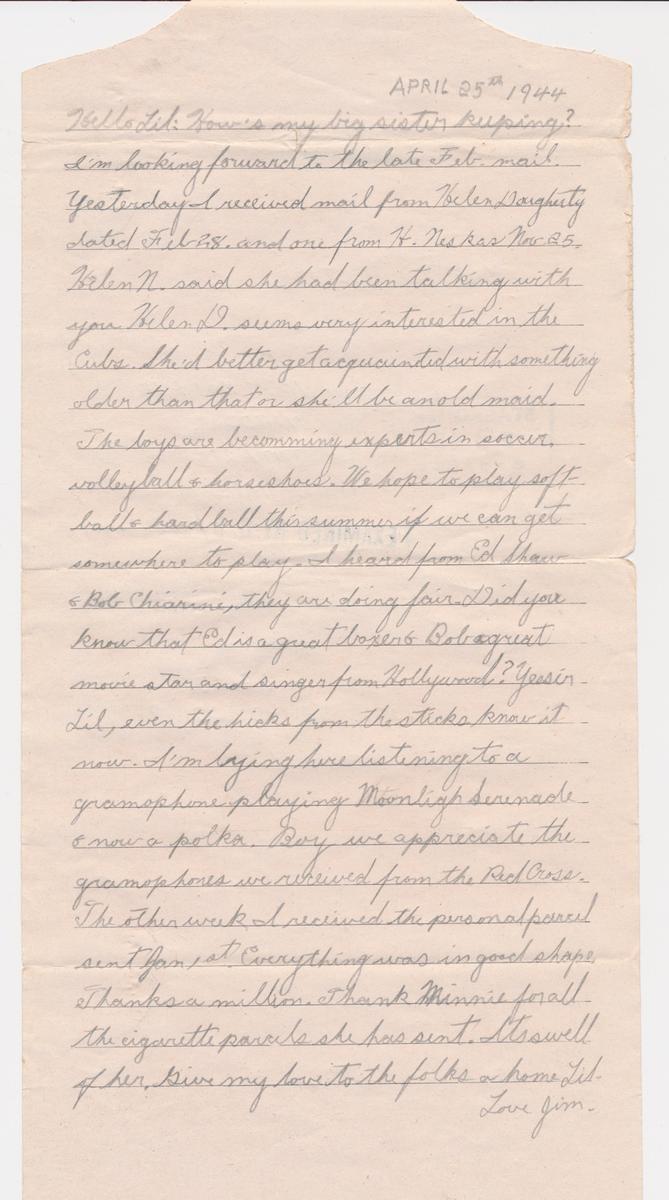 APRIL 25th 1944
Hello Lil: How's my big sister keeping?
I'm looking forward to the late Feb. mail.
Yesterday I received mail from Helen Daugherty
dated Feb 28. and one from H. Neskas Nov 25.
Helen N. said she had been talking with
you. Helen D. seems very interested in the
Cubs. She'd better get acquainted with something
older than that or she'll be an old maid.
The boys are becomming experts in soccer,
volleyball & horseshoes. We hope to play soft-
ball & hardball this summer if we can get
somewhere to play. I heard from Ed Shaw
& Bob Chiarini, they are doing fair. Did you
know that Ed is a great boxer & Bob a great
movie star and singer from Hollywood? Yessir
Lil, even the hicks from the sticks know it
now. I'm lying here listening to a
gramophone playing Moonligh Serenade
& now a polka. Boy we appreciate the
gramophones we received from the Red Cross.
The other week I received the personal parcel
sent Jan, 1st. Everything was in good shape,
Thanks a million. Thank Minnie for all
the cigarette parcels she has sent. Its swell
of her. Give my love to the folks a home Lil.
Love Jim.